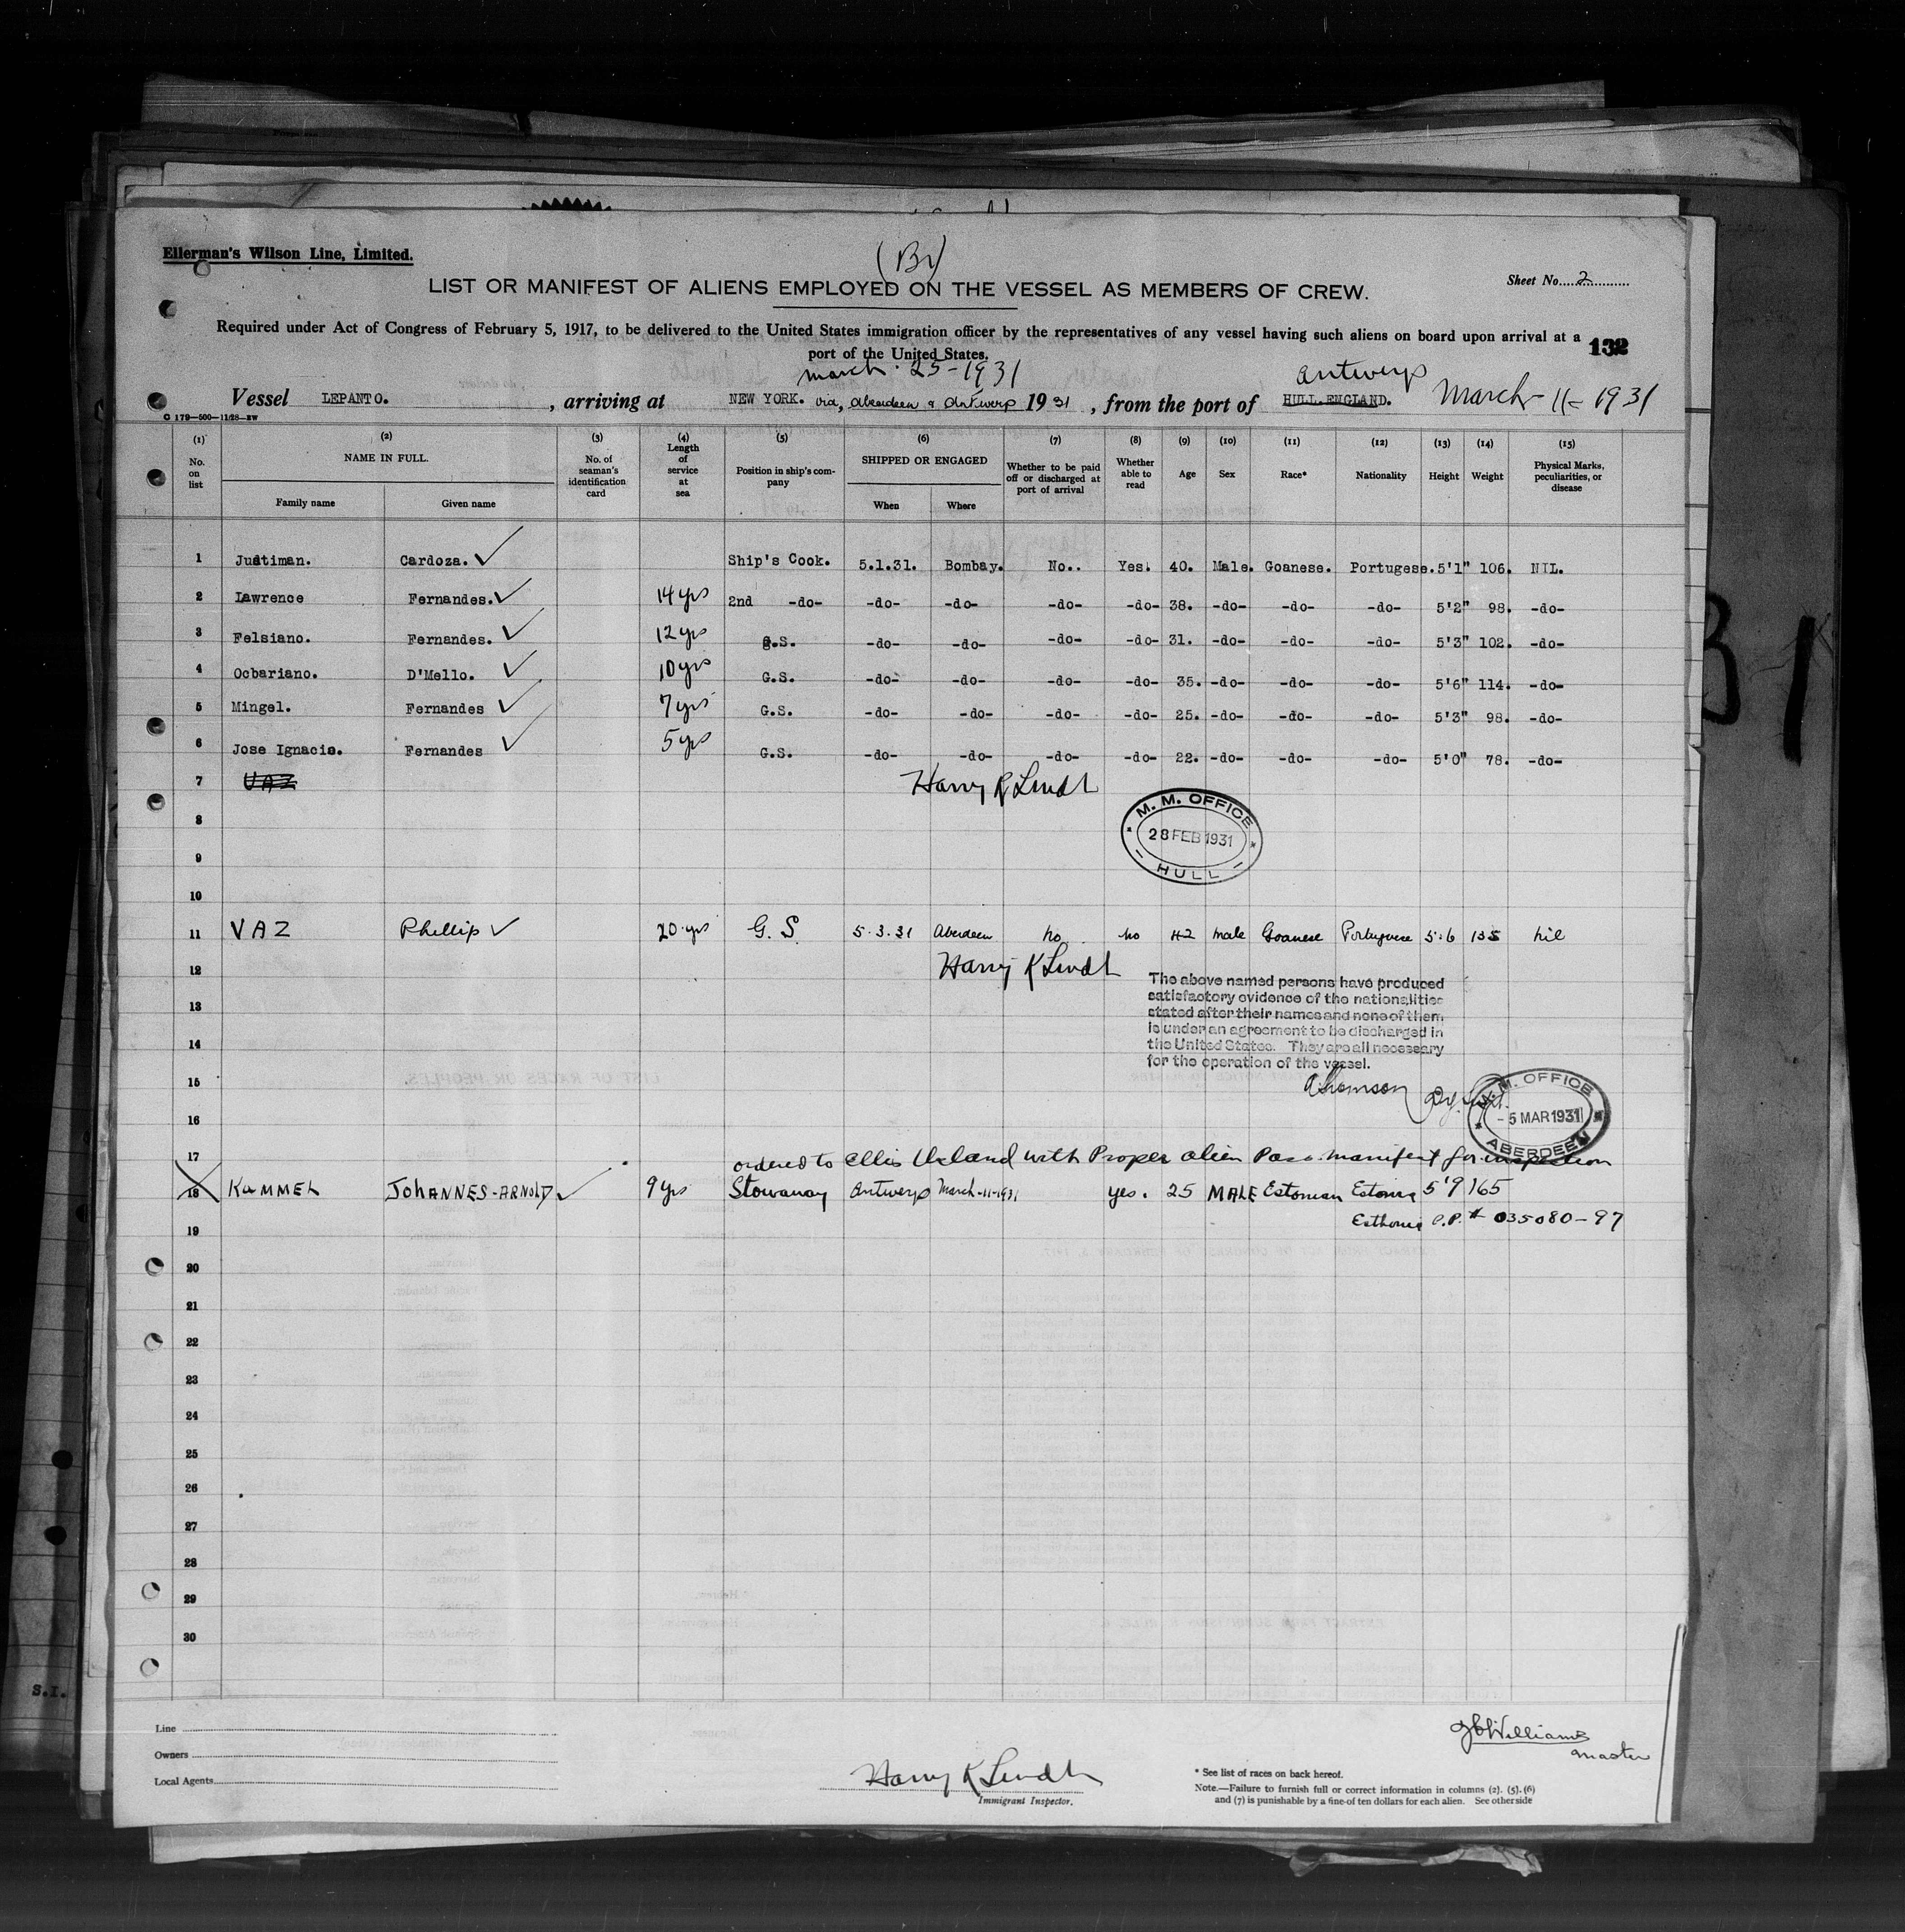 Ellerman's Wilson Line, Limited.
(Br)
LIST OR MANIFEST OF ALIENS EMPLOYED ON THE VESSEL AS MEMBERS OF CREW.
Sheet No. 2
Required under Act of Congress of February 5, 1917, to be delivered to the United States immigration officer by the representatives of any vessel having such aliens on board upon arrival at a
port of the United States.
132
March 25-1931
Antwerp
Vessel LEPANTO. , arriving at NEW YORK. via, Aberdeen & Antwerp 1931 , from the port of HULL.ENGLAND. March-11-1931
C 179—500—11/28—EW
(1) (2) (3) (4) (5) (6) (7) (8) (9) (10) (11) (12) (13) (14) (15)
No. on list NAME IN FULL. Family name Given name No. of seaman's identification card Length of service at sea Position in ship's company SHIPPED OR ENGAGED When Where Whether to be paid off or discharged at port of arrival Whether able to read Age Sex Race* Nationality Height Weight Physical Marks, peculiarities, or disease
1 Justiman. Cardoza. Ship's Cook. 5.1.31. Bombay. No.. Yes. 40. Male. Goanese. Portugese. 5'1" 106. NIL.
2 Lawrence Fernandes. 14 yrs 2nd -do- -do- -do- -do- -do- 38. -do- -do- -do- 5'2" 98. -do-
3 Felsiano. Fernandes. 12 yrs G.S. -do- -do- -do- -do- 31. -do- -do- -do- 5'3" 102. -do-
4 Ocbariano. D'Mello. 10 yrs G.S. -do- -do- -do- -do- 35. -do- -do- -do- 5'6" 114. -do-
5 Mingel. Fernandes 7 yrs G.S. -do- -do- -do- -do- 25. -do- -do- -do- 5'3" 98. -do-
6 Jose Ignacio. Fernandes 5 yrs G.S. -do- -do- -do- -do- 22. -do- -do- -do- 5'0" 78. -do-
7 VAZ Harry K Lindh
8
M. M. OFFICE
28 FEB 1931
HULL
9
10
11 VAZ Phillip 20 yrs G. S 5.3.31 Aberdeen No. No 42 Male Goanese Portuguese 5:6 135 Nil
12 Harry K Lindh
The above named persons have produced
satisfactory evidence of the nationalities
stated after their names and none of them
is under an agreement to be discharged in
the United States. They are all necessary
for the operation of the vessel.
13
14
15 AThomson
M. M. OFFICE
- 5 MAR 1931
ABERDEEN
16
17 ordered to Ellis Island with Proper alien Pass. manifest for inspection
18 KAMMEL JOHANNES-ARNOLD 9 yrs Stowaway Antwerp March-11-1931 yes. 25 MALE Estonian Estonia 5'9 165
19 Esthonia P.P. # 035080-97
20
21
22
23
24
25
26
27
28
29
30
S.I.
Line
Owners
Local Agents
Harry K Lindh
Immigrant Inspector.
Williams
Master
* See list of races on back hereof.
Note.—Failure to furnish full or correct information in columns (2). (5). (6)
and (7) is punishable by a fine of ten dollars for each alien. See other side